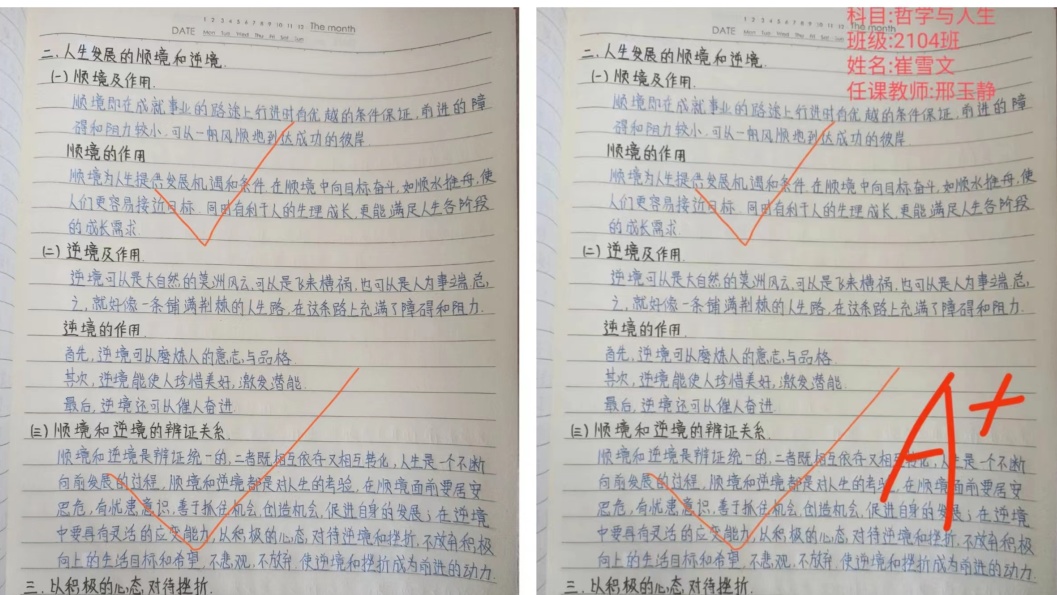 1 2 3 4 5 6 7 8 9 10 11 12 The month
DATE Mon. Tue. Wed. Thu. Fri. Sat. Sun.
二、人生发展的顺境和逆境.
(一) 顺境及作用.
顺境即在成就事业的路途上行进时有优越的条件保证,前进的障
碍和阻力较小,可从一帆风顺地到达成功的彼岸.
顺境的作用
顺境为人生提供发展机遇和条件,在顺境中向目标奋斗,如顺水推舟,使
人们更容易接近目标.同时有利于人的生理成长,更能满足人生各阶段
的成长需求.
(二) 逆境及作用.
逆境可从是大自然的 风云,可从是飞来横祸,也可从是人为事端,总
之,就好像一条铺满荆棘的人生路,在这条路上充满了障碍和阻力.
逆境的作用.
首先,逆境可从磨炼人的意志与品格.
其次,逆境能使人珍惜美好,激发潜能.
最后,逆境还可从催人奋进.
(三) 顺境和逆境的辨证关系.
顺境和逆境是辨证统一的,二者既相互依存又相互转化,人生是一个不断
向前发展的过程,顺境和逆境都是对人生的考验,在顺境面前要居安
思危,有忧患意识,善于抓住机会,创造机会,促进自身的发展;在逆境
中要具有灵活的应变能力,从积极的心态,对待逆境和挫折,不放有积极
向上的生活目标和希望,不悲观,不放弃,使逆境和挫折成为前进的动力.
三、以积极的心态对待挫折.
1 2 3 4 5 6 7 8 9 10 11 12 The month
DATE Mon. Tue. Wed. Thu. Fri. Sat. Sun.
科目:哲学与人生
班级:2104班
姓名:崔雪文
任课教师:邢玉静
二、人生发展的顺境和逆境.
(一) 顺境及作用.
顺境即在成就事业的路途上行进时有优越的条件保证,前进的障
碍和阻力较小,可从一帆风顺地到达成功的彼岸.
顺境的作用
顺境为人生提供发展机遇和条件,在顺境中向目标奋斗,如顺水推舟,使
人们更容易接近目标.同时有利于人的生理成长,更能满足人生各阶段
的成长需求.
(二) 逆境及作用.
逆境可从是大自然的 风云,可从是飞来横祸,也可从是人为事端,总
之,就好像一条铺满荆棘的人生路,在这条路上充满了障碍和阻力.
逆境的作用.
首先,逆境可从磨炼人的意志与品格.
其次,逆境能使人珍惜美好,激发潜能.
最后,逆境还可从催人奋进.
A+
(三) 顺境和逆境的辨证关系.
顺境和逆境是辨证统一的,二者既相互依存又相互转化,人生是一个不断
向前发展的过程,顺境和逆境都是对人生的考验,在顺境面前要居安
思危,有忧患意识,善于抓住机会,创造机会,促进自身的发展;在逆境
中要具有灵活的应变能力,从积极的心态,对待逆境和挫折,不放有积极
向上的生活目标和希望,不悲观,不放弃,使逆境和挫折成为前进的动力.
三、以积极的心态对待挫折.